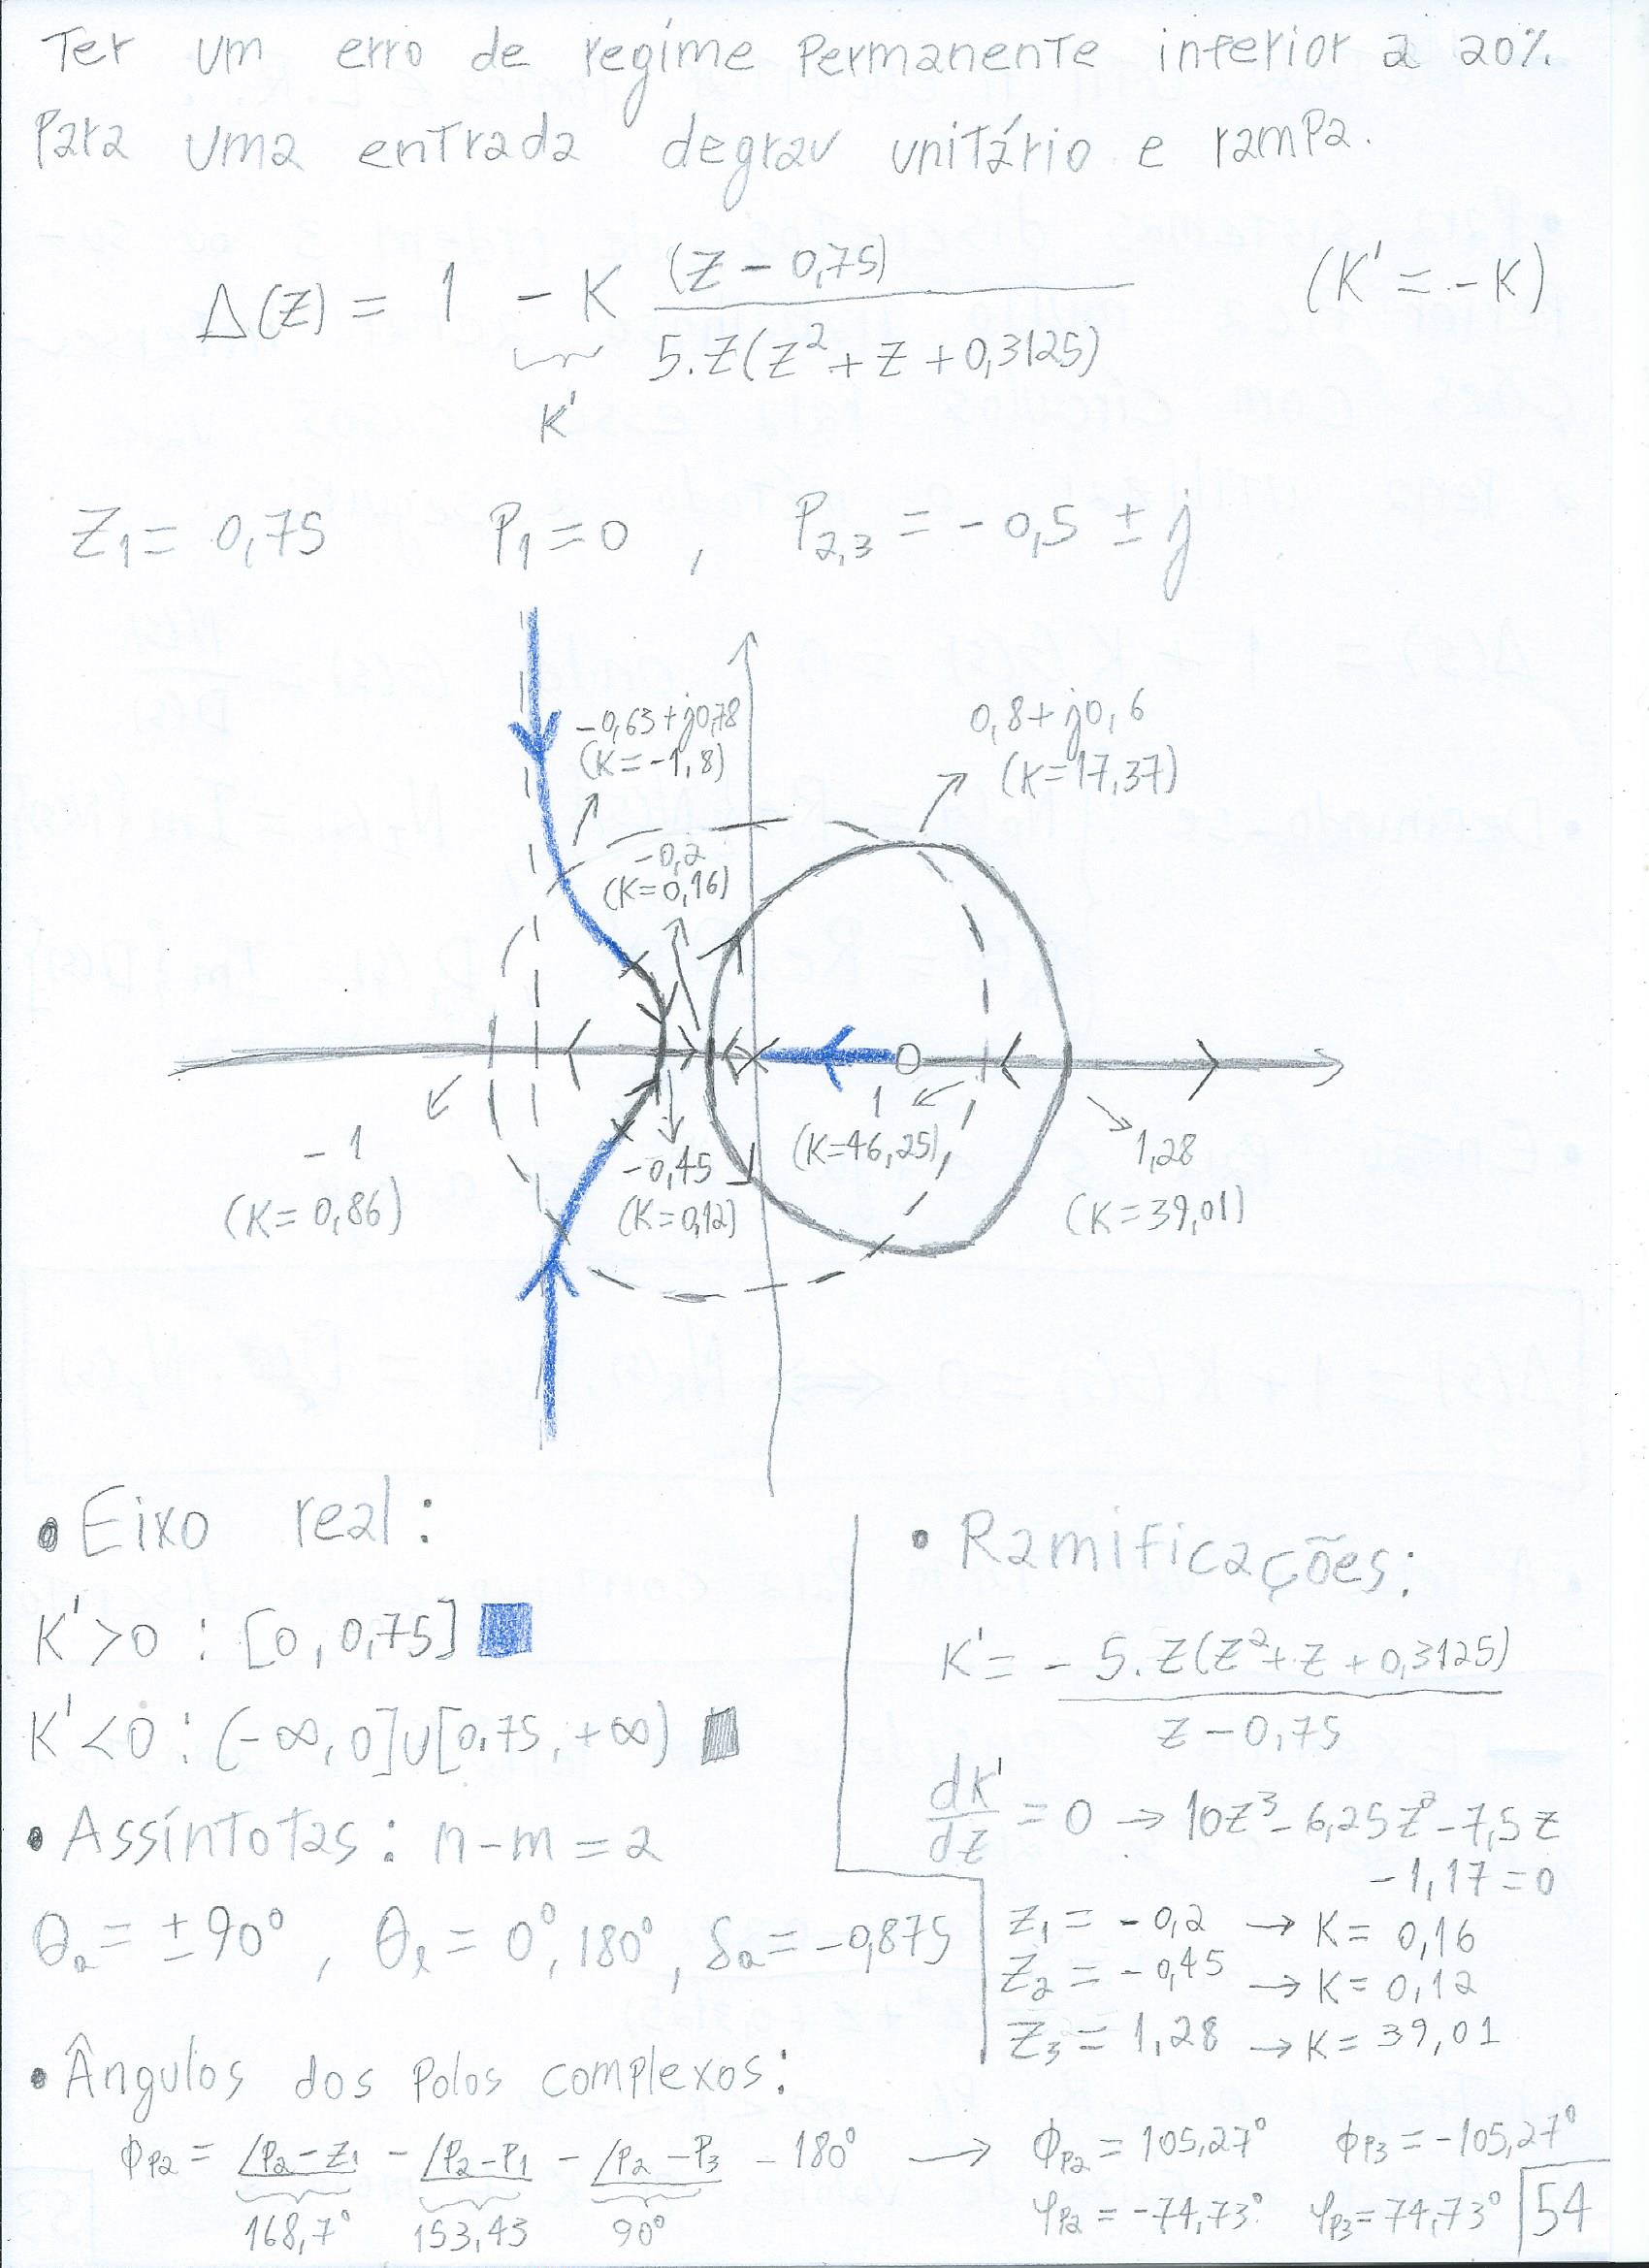 Ter um erro de regime permanente inferior a 20%
para uma entrada degrau unitário e rampa.
Δ(z) = 1 - K (z - 0,75) / 5.z(z² + z + 0,3125) (K' = -K)
K'
Z₁ = 0,75 P₁ = 0 , P₂,₃ = -0,5 ± j
-0,63 + j0,78
(K = -1,8)
0,8 + j0,6
(K = 17,37)
-0,2
(K = 0,16)
-1
(K = 0,86)
-0,45
(K = 0,12)
1
(K = 46,25)
1,28
(K = 39,01)
• Eixo real:
K' > 0 : [0, 0,75]
K' < 0 : (-∞, 0] ∪ [0,75, +∞)
• Assíntotas: n - m = 2
θa = ± 90° , θℓ = 0°, 180° , δa = -0,875
• Ramificações:
K' = - 5.z(z² + z + 0,3125) / z - 0,75
dK'/dz = 0 → 10z³ - 6,25z² - 7,5z
- 1,17 = 0
z₁ = -0,2 → K = 0,16
z₂ = -0,45 → K = 0,12
z₃ = 1,28 → K = 39,01
• Ângulos dos polos complexos:
ϕP₂ = ∠P₂ - Z₁ - ∠P₂ - P₁ - ∠P₂ - P₃ - 180° → ϕP₂ = 105,27° ϕP₃ = -105,27°
168,7° 153,43 90° φP₂ = -74,73° φP₃ = 74,73°
54